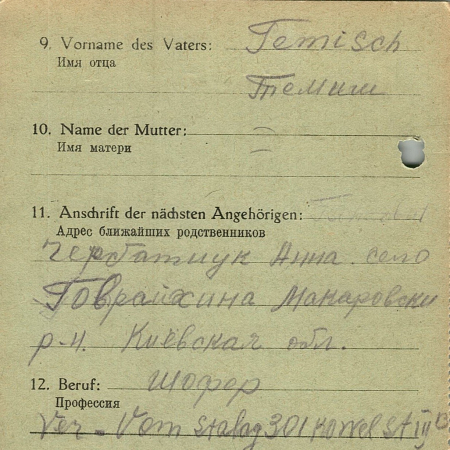 9. Vorname des Vaters: Temisch
Имя отца
Темиш
10. Name der Mutter: =
Имя матери
11. Anschrift der nächsten Angehörigen:
Адрес ближайших родственников
Чербатиук Анна. село
Говрайхина Макаровски
р-н. Киевская обл.
12. Beruf: шофер
Профессия
Ver - Vom Stalag 301 Kowel St III